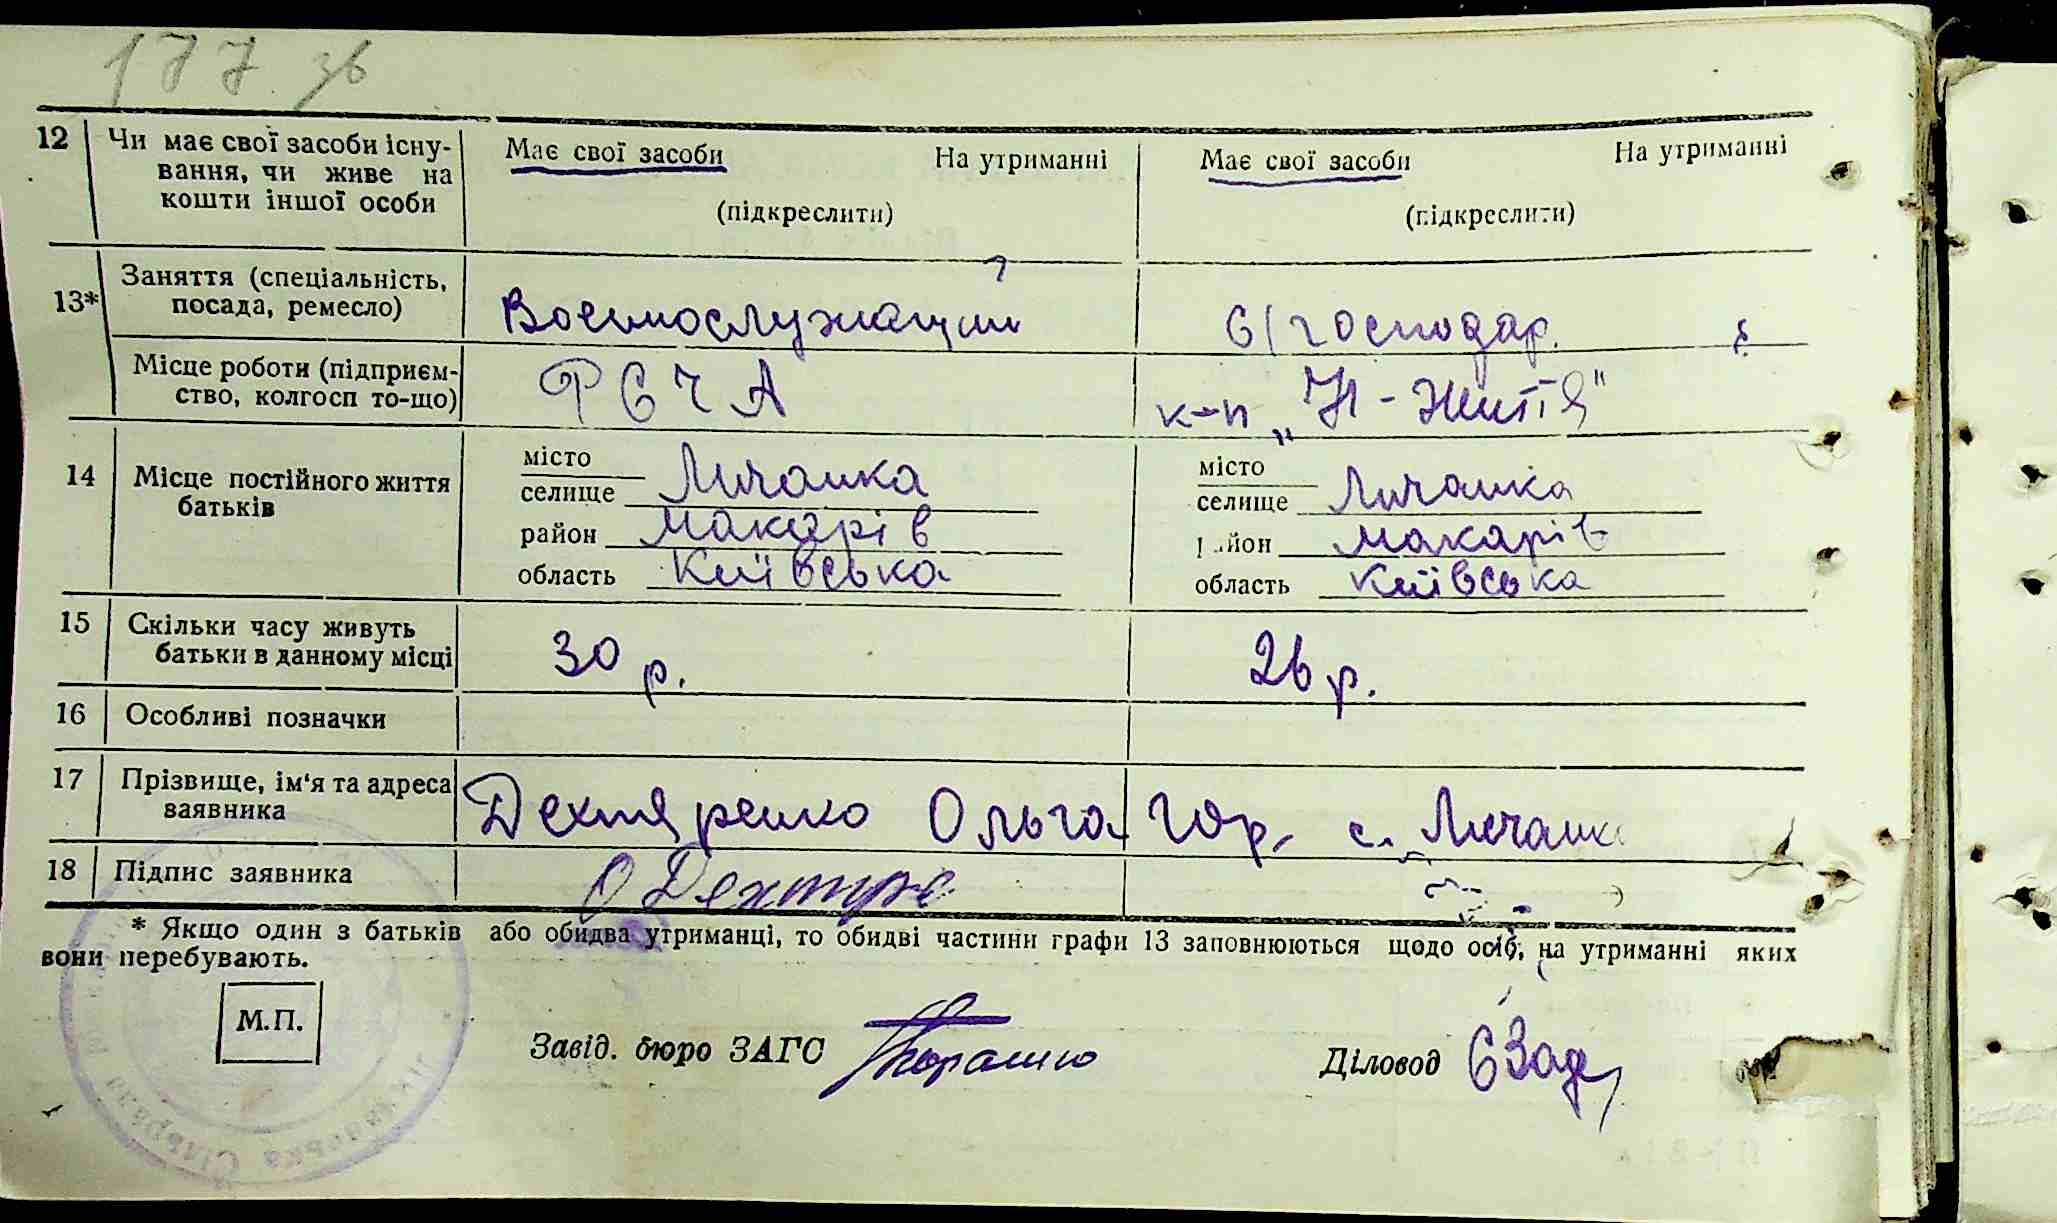 177 зв
12 Чи має свої засоби існу- Має свої засоби На утриманні Має свої засоби На утриманні
вання, чи живе на
кошти іншої особи (підкреслити) (підкреслити)
13* Заняття (спеціальність,
посада, ремесло) Военнослужащий с/господар.
Місце роботи (підприєм- РСЧА к-п „Н-життя"
ство, колгосп то-що)
14 Місце постійного життя батьків
місто місто
селище Личанка селище Личанка
район Макарів район Макарів
область Київська область Київська
15 Скільки часу живуть
батьки в данному місці 30 р. 26 р.
16 Особливі позначки
17 Прізвище, ім'я та адреса
заявника Дехтяренко Ольга Гор. с. Личанка
18 Підпис заявника О Дехтяре
* Якщо один з батьків або обидва утриманці, то обидві частини графи 13 заповнюються щодо осіб, на утриманні яких
вони перебувають.
М.П.
Завід. бюро ЗАГС Діловод
Сільрада